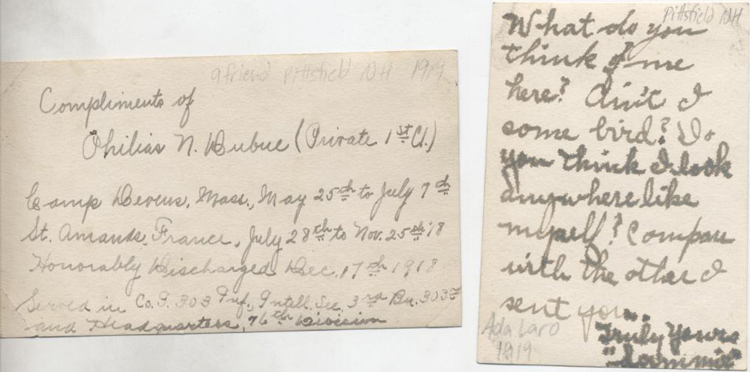 a friend Pittsfield NH 1919
Compliments of
Philias N. Dubuc (Private 1st Cl.)
Camp Devens, Mass., May 25th to July 7th
St. Amands, France, July 28th to Nov. 25th '18
Honorably Discharged Dec. 17th 1918
Served in Co. 303 Inf., Intell. Sec. 3rd Bn. 303rd
and Headquarters, 76th Division
Pittsfield NH
What do you
think of me
here? Ain't I
some bird? Do
you think I look
anywhere like
myself? Compare
with the other I
sent you.
Truly Yours
Ada Laro
1919